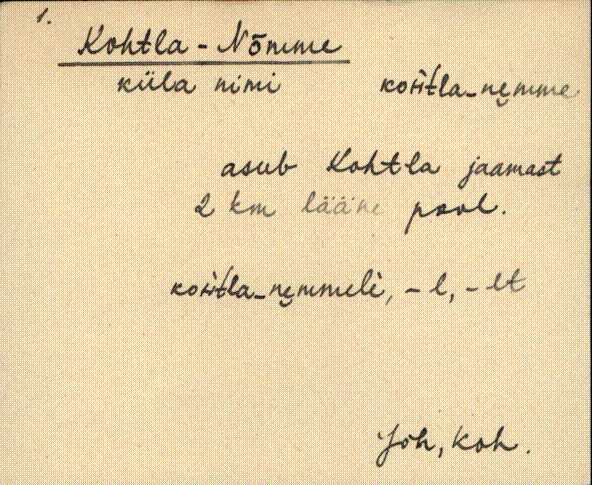 1.
Kohtla-Nõmme
küla nimi kohtla-nemme
asub Kohtla jaamast
2 km lääne pool.
kohtla-nemmele, -l, -lt
Jõh, Koh.